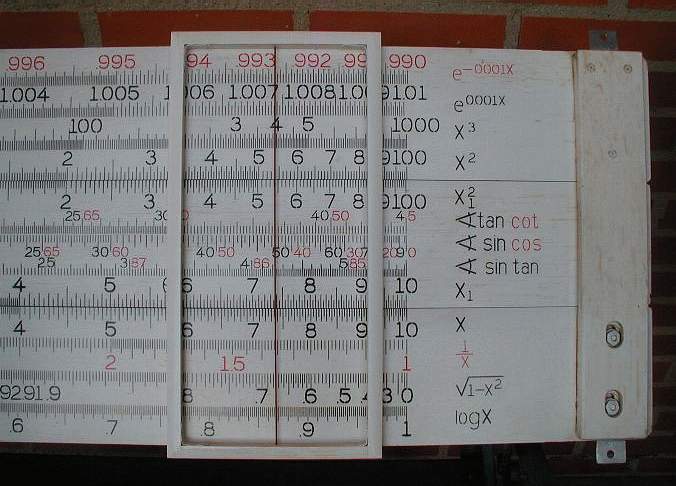 .996 .995 94 993 992 .99 .990 e^-0001X
1.004 1.005 1 006 1007 1.008 1.0 9 1.01 e^0001X
100 3 4 5 1000 X^3
2 3 4 5 6 7 8 9 100 X^2
2 3 4 5 6 7 8 9 100 X_1^2
25 65 30 40 50 45 ∢ tan cot
25 65 30 60 40 50 50 40 60 30 7 20 90 ∢ sin cos
2.5 3 87 4 86 5 85 ∢ sin tan
4 5 6 7 8 9 10 X_1
4 5 6 7 8 9 10 X
2 1.5 1 1/X
.92 91 .9 8 .7 .6 .5 .4 3 0 √1-X^2
.6 .7 .8 .9 1 logX